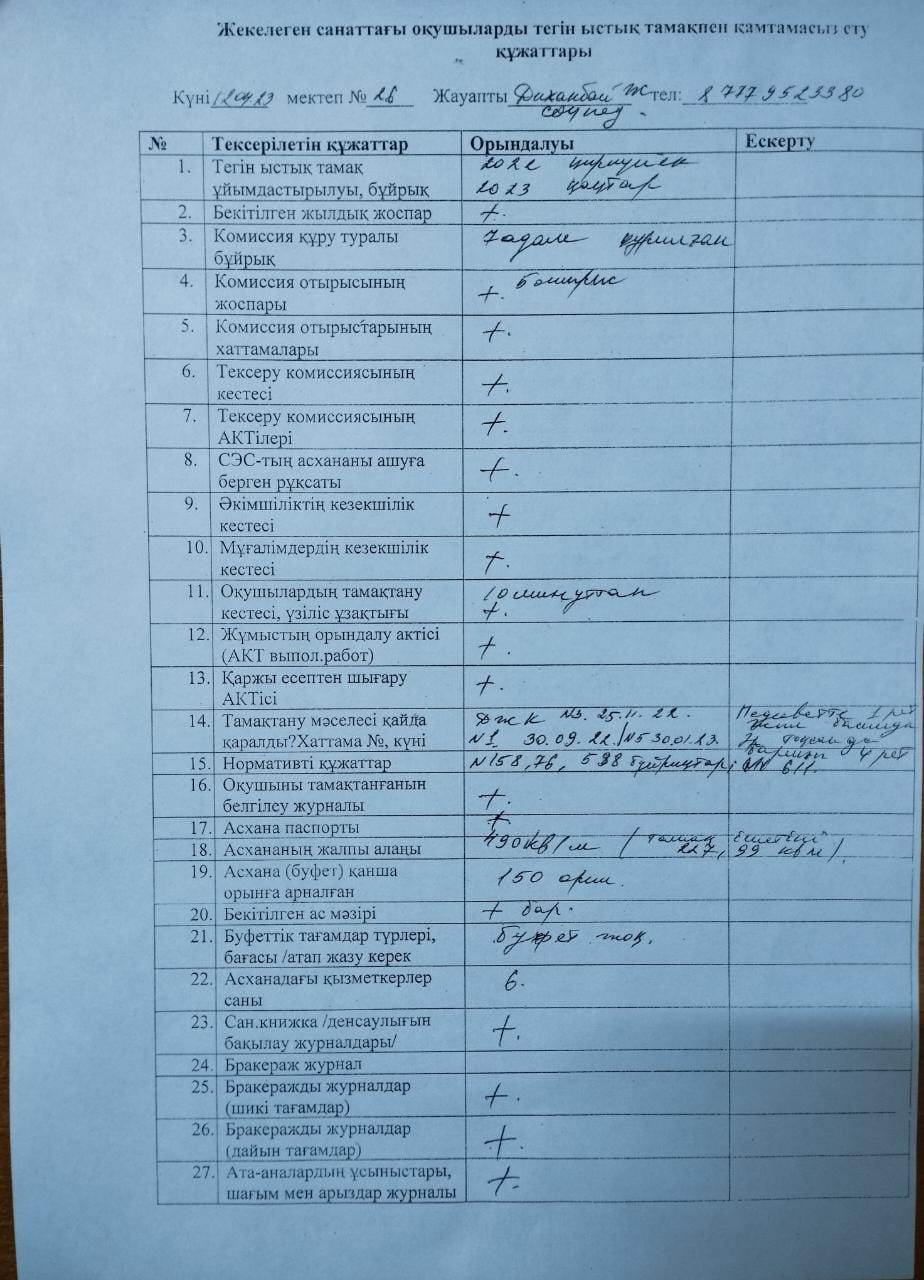 Жекелеген санаттағы оқушыларды тегін ыстық тамақпен қамтамасыз ету
құжаттары
Күні 120423 мектеп № 26 Жауапты Диханбай Ж тел: 8 777 9523380
№ Тексерілетін құжаттар Орындалуы Ескерту
1. Тегін ыстық тамақ 2022 қыркүйек
ұйымдастырылуы, бұйрық 2023 қаңтар
2. Бекітілген жылдық жоспар +.
3. Комиссия құру туралы 7 адам құрылған
бұйрық
4. Комиссия отырысының +.
жоспары
5. Комиссия отырыстарының +.
хаттамалары
6. Тексеру комиссиясының +.
кестесі
7. Тексеру комиссиясының +.
АКТілері
8. СЭС-тың асхананы ашуға +.
берген рұқсаты
9. Әкімшіліктің кезекшілік +
кестесі
10. Мұғалімдердің кезекшілік +.
кестесі
11. Оқушылардың тамақтану 10 минуттан
кестесі, үзіліс ұзақтығы +.
12. Жұмыстың орындалу актісі +.
(АКТ выпол.работ)
13. Қаржы есептен шығару +.
АКТісі
14. Тамақтану мәселесі қайда ДЖК №3. 25.11.22. Педсоветте 1 рет
қаралды?Хаттама №, күні №1 30.09.22./№5 30.01.23.
4 рет
15. Нормативті құжаттар №158, 76, 598 бұйрықтары 611.
16. Оқушыны тамақтанғанын +.
белгілеу журналы
17. Асхана паспорты +
18. Асхананың жалпы алаңы 490кв/м (тамақ ішетіні 227, 99 кв м).
19. Асхана (буфет) қанша 150 орын.
орынға арналған
20. Бекітілген ас мәзірі + бар.
21. Буфеттік тағамдар түрлері, Буфет жоқ.
бағасы /атап жазу керек
22. Асханадағы қызметкерлер 6.
саны
23. Сан.книжка /денсаулығын +.
бақылау журналдары/
24. Бракераж журнал
25. Бракеражды журналдар +.
(шикі тағамдар)
26. Бракеражды журналдар +.
(дайын тағамдар)
27. Ата-аналардың ұсыныстары, +.
шағым мен арыздар журналы